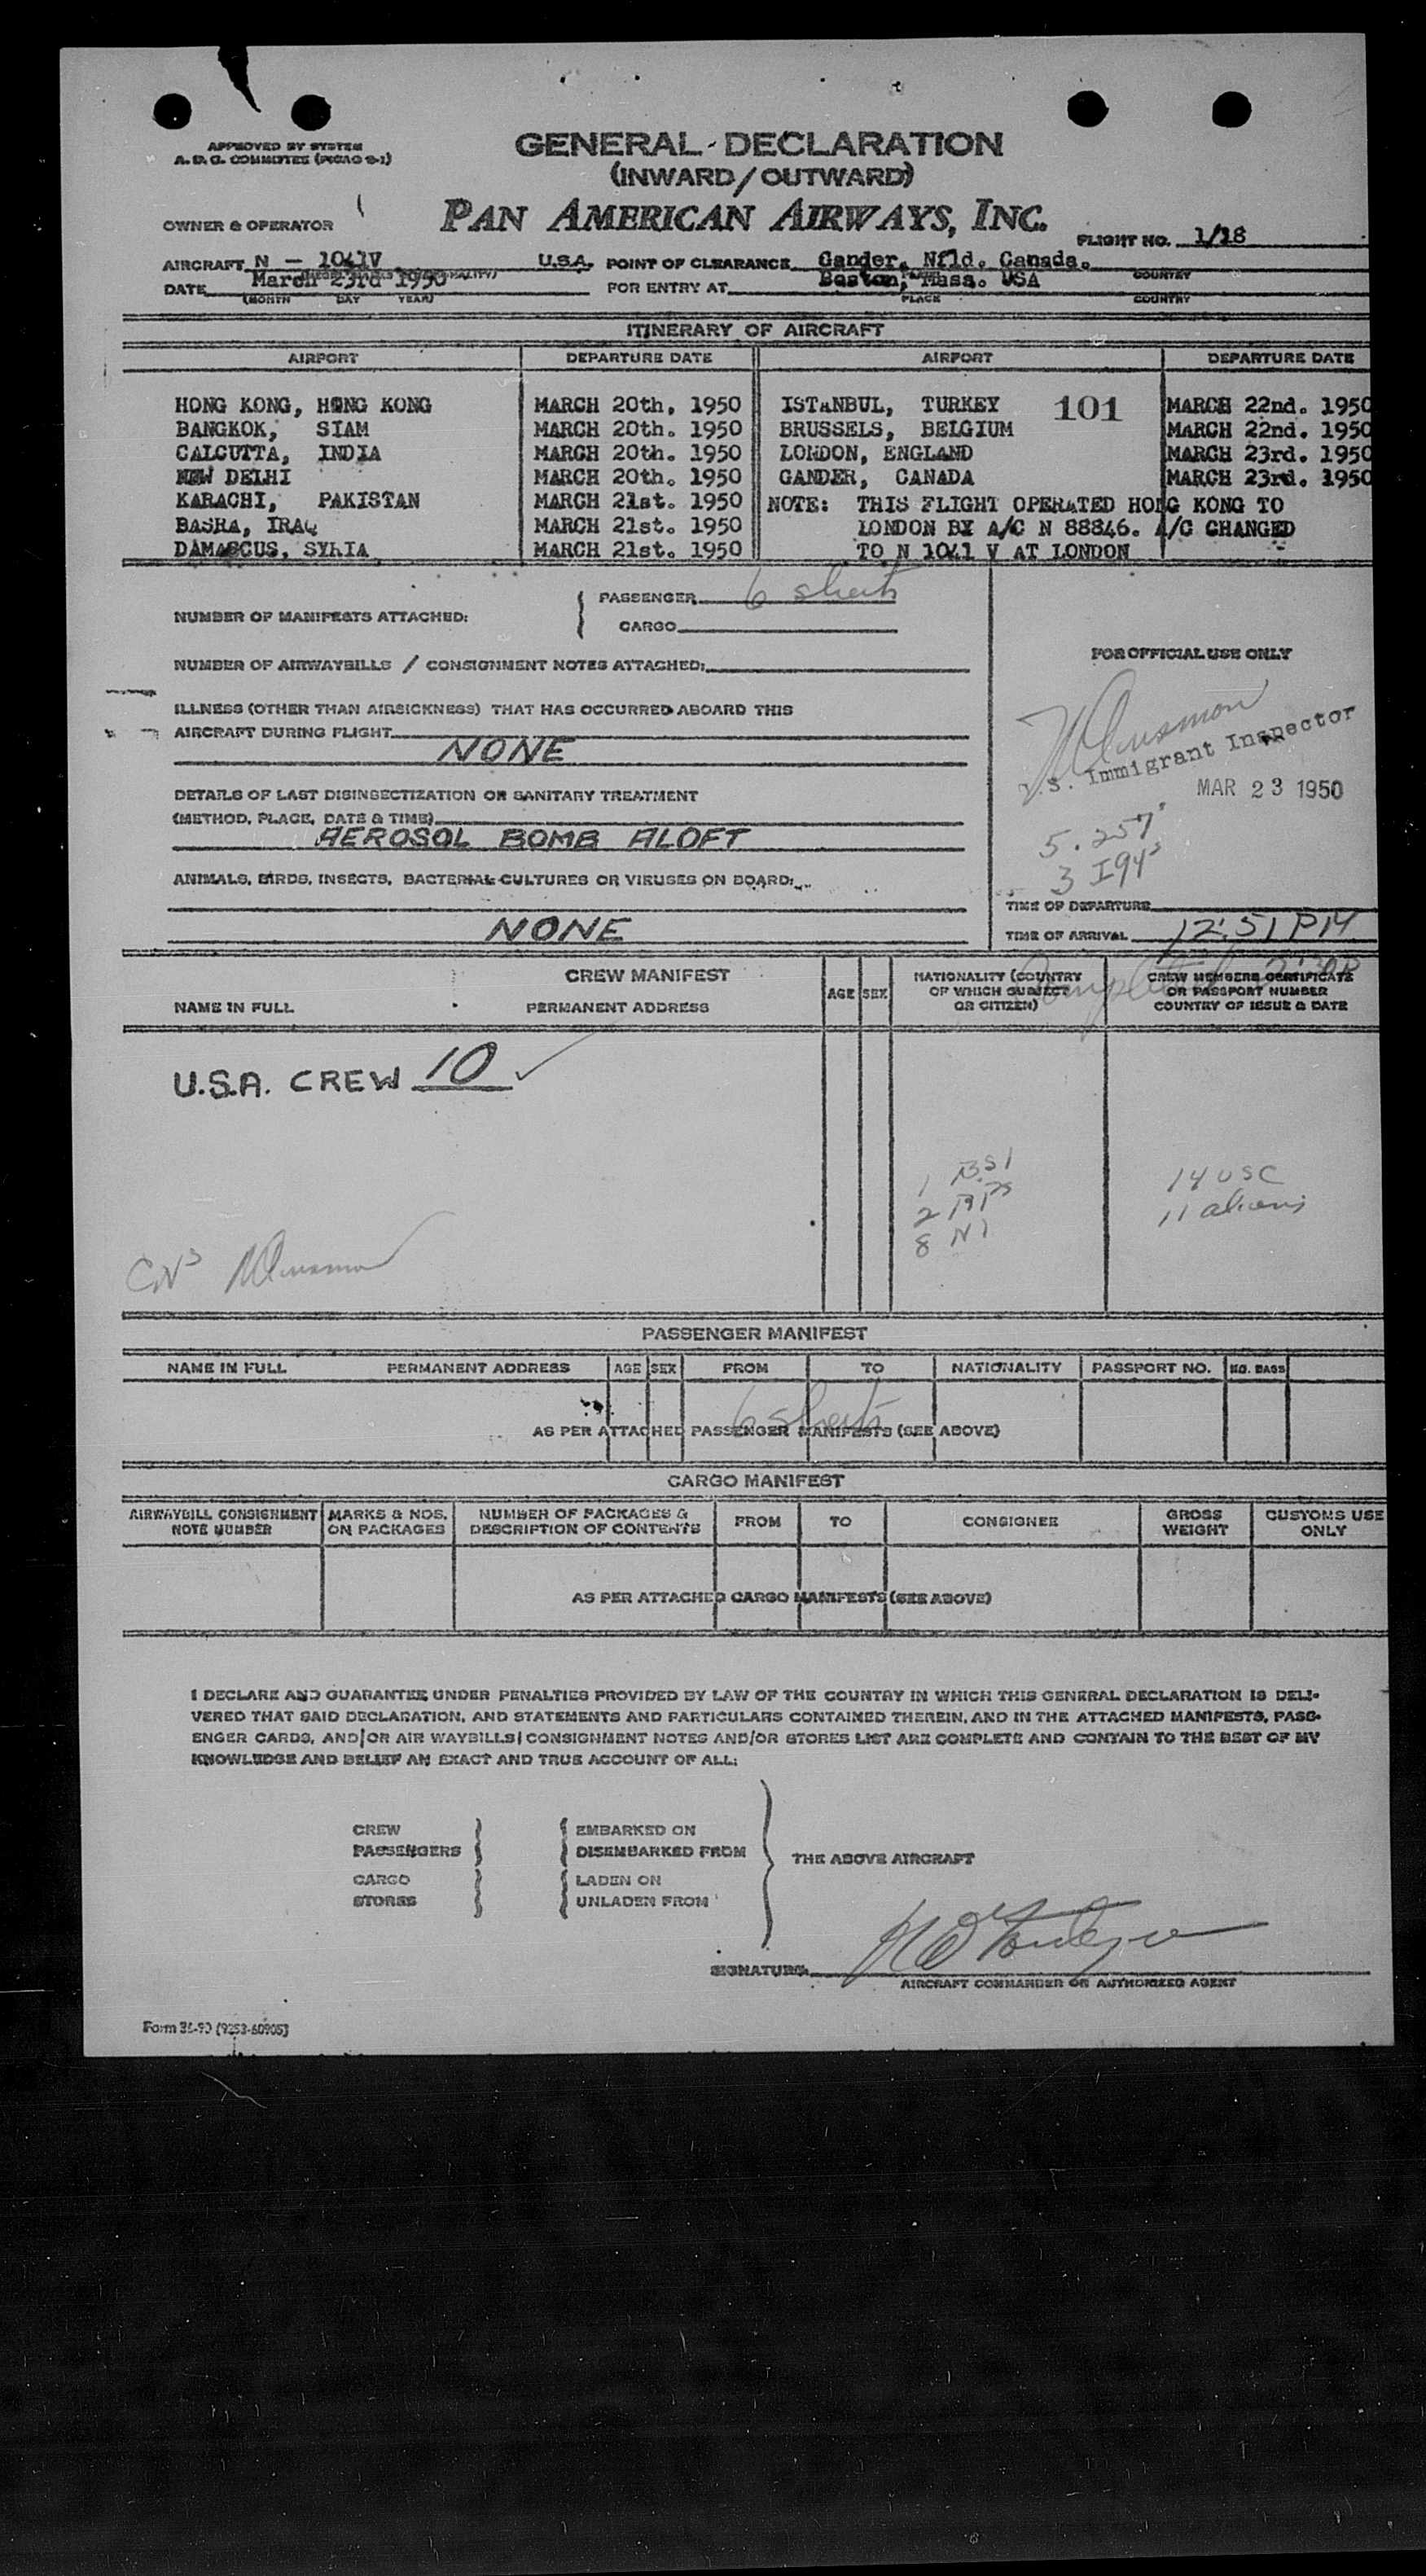 APPROVED BY SYSTEM
A. D. C. COMMITTEE (PICAO 9-1)
GENERAL DECLARATION
(INWARD/OUTWARD)
OWNER & OPERATOR
PAN AMERICAN AIRWAYS, INC.
FLIGHT NO. 1/18
AIRCRAFT N - 1041V U.S.A. POINT OF CLEARANCE Gander, Nfld. Canada.
COUNTRY
DATE March 23rd 1950 FOR ENTRY AT Boston, Mass. USA
(MONTH DAY YEAR) PLACE COUNTRY
ITINERARY OF AIRCRAFT
AIRPORT DEPARTURE DATE AIRPORT DEPARTURE DATE
HONG KONG, HONG KONG MARCH 20th, 1950 ISTANBUL, TURKEY 101 MARCH 22nd. 1950
BANGKOK, SIAM MARCH 20th. 1950 BRUSSELS, BELGIUM MARCH 22nd. 1950
CALCUTTA, INDIA MARCH 20th. 1950 LONDON, ENGLAND MARCH 23rd. 1950
NEW DELHI MARCH 20th. 1950 GANDER, CANADA MARCH 23rd. 1950
KARACHI, PAKISTAN MARCH 21st. 1950 NOTE: THIS FLIGHT OPERATED HONG KONG TO
BASRA, IRAQ MARCH 21st. 1950 LONDON BY A/C N 88846. A/C CHANGED
DAMASCUS, SYRIA MARCH 21st. 1950 TO N 1041 V AT LONDON
NUMBER OF MANIFESTS ATTACHED:
PASSENGER 6 sheets
CARGO
NUMBER OF AIRWAYBILLS / CONSIGNMENT NOTES ATTACHED:
ILLNESS (OTHER THAN AIRSICKNESS) THAT HAS OCCURRED ABOARD THIS
AIRCRAFT DURING FLIGHT
NONE
DETAILS OF LAST DISINSECTIZATION OR SANITARY TREATMENT
(METHOD, PLACE, DATE & TIME)
AEROSOL BOMB ALOFT
ANIMALS, BIRDS, INSECTS, BACTERIAL CULTURES OR VIRUSES ON BOARD:
NONE
FOR OFFICIAL USE ONLY
U.S. Immigrant Inspector
MAR 23 1950
5. 257s
3 I94s
TIME OF DEPARTURE
TIME OF ARRIVAL 12:51 PM
CREW MANIFEST
NAME IN FULL PERMANENT ADDRESS AGE SEX
NATIONALITY (COUNTRY
OF WHICH SUBJECT
OR CITIZEN)
CREW MEMBERS CERTIFICATE
OR PASSPORT NUMBER
COUNTRY OF ISSUE & DATE
U.S.A. CREW 10 ✓
1 BSI
2
8
14 USC
11 aliens
PASSENGER MANIFEST
NAME IN FULL PERMANENT ADDRESS AGE SEX FROM TO NATIONALITY PASSPORT NO. NO. BAGS
6 sheets
AS PER ATTACHED PASSENGER MANIFESTS (SEE ABOVE)
CARGO MANIFEST
AIRWAYBILL CONSIGNMENT MARKS & NOS. NUMBER OF PACKAGES & FROM TO CONSIGNEE GROSS CUSTOMS USE
NOTE NUMBER ON PACKAGES DESCRIPTION OF CONTENTS WEIGHT ONLY
AS PER ATTACHED CARGO MANIFESTS (SEE ABOVE)
I DECLARE AND GUARANTEE UNDER PENALTIES PROVIDED BY LAW OF THE COUNTRY IN WHICH THIS GENERAL DECLARATION IS DELI-
VERED THAT SAID DECLARATION, AND STATEMENTS AND PARTICULARS CONTAINED THEREIN, AND IN THE ATTACHED MANIFESTS, PASS-
ENGER CARDS, AND/OR AIR WAYBILLS/CONSIGNMENT NOTES AND/OR STORES LIST ARE COMPLETE AND CONTAIN TO THE BEST OF MY
KNOWLEDGE AND BELIEF AN EXACT AND TRUE ACCOUNT OF ALL:
CREW EMBARKED ON
PASSENGERS DISEMBARKED FROM
THE ABOVE AIRCRAFT
CARGO LADEN ON
STORES UNLADEN FROM
SIGNATURE
AIRCRAFT COMMANDER OR AUTHORIZED AGENT